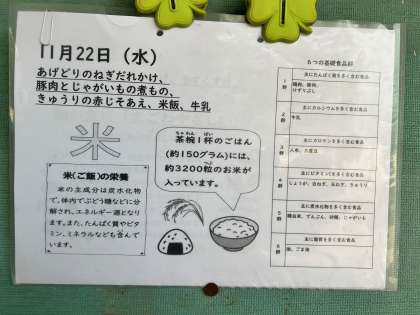 11月22日（水）
あげどりのねぎだれかけ、
豚肉とじゃがいもの煮もの、
きゅうりの赤じそあえ、米飯、牛乳
米
米(ご飯)の栄養
米の主成分は炭水化物
で、体内でぶどう糖などに分
解され、エネルギー源となり
ます。また、たんぱく質やビタ
ミン、ミネラルなども含んで
います。
ちゃわん ぱい
茶碗1杯のごはん
(約150グラム)には、
つぶ
約3200粒のお米が
入っています。
6つの基礎食品群
主にたんぱく質を多く含む食品
1群
鶏肉、豚肉、
主にカルシウムを多く含む食品
2群
牛乳
主にカロテンを多く含む食品
3群
人参、
主にビタミンCを多く含む食品
4群
しょうが、白ねぎ、玉ねぎ、きゅうり
主に炭水化物を多く含む食品
5群
精白米、でんぷん、砂糖、じゃがいも
主に脂質を多く含む食品
6群
油、ごま油